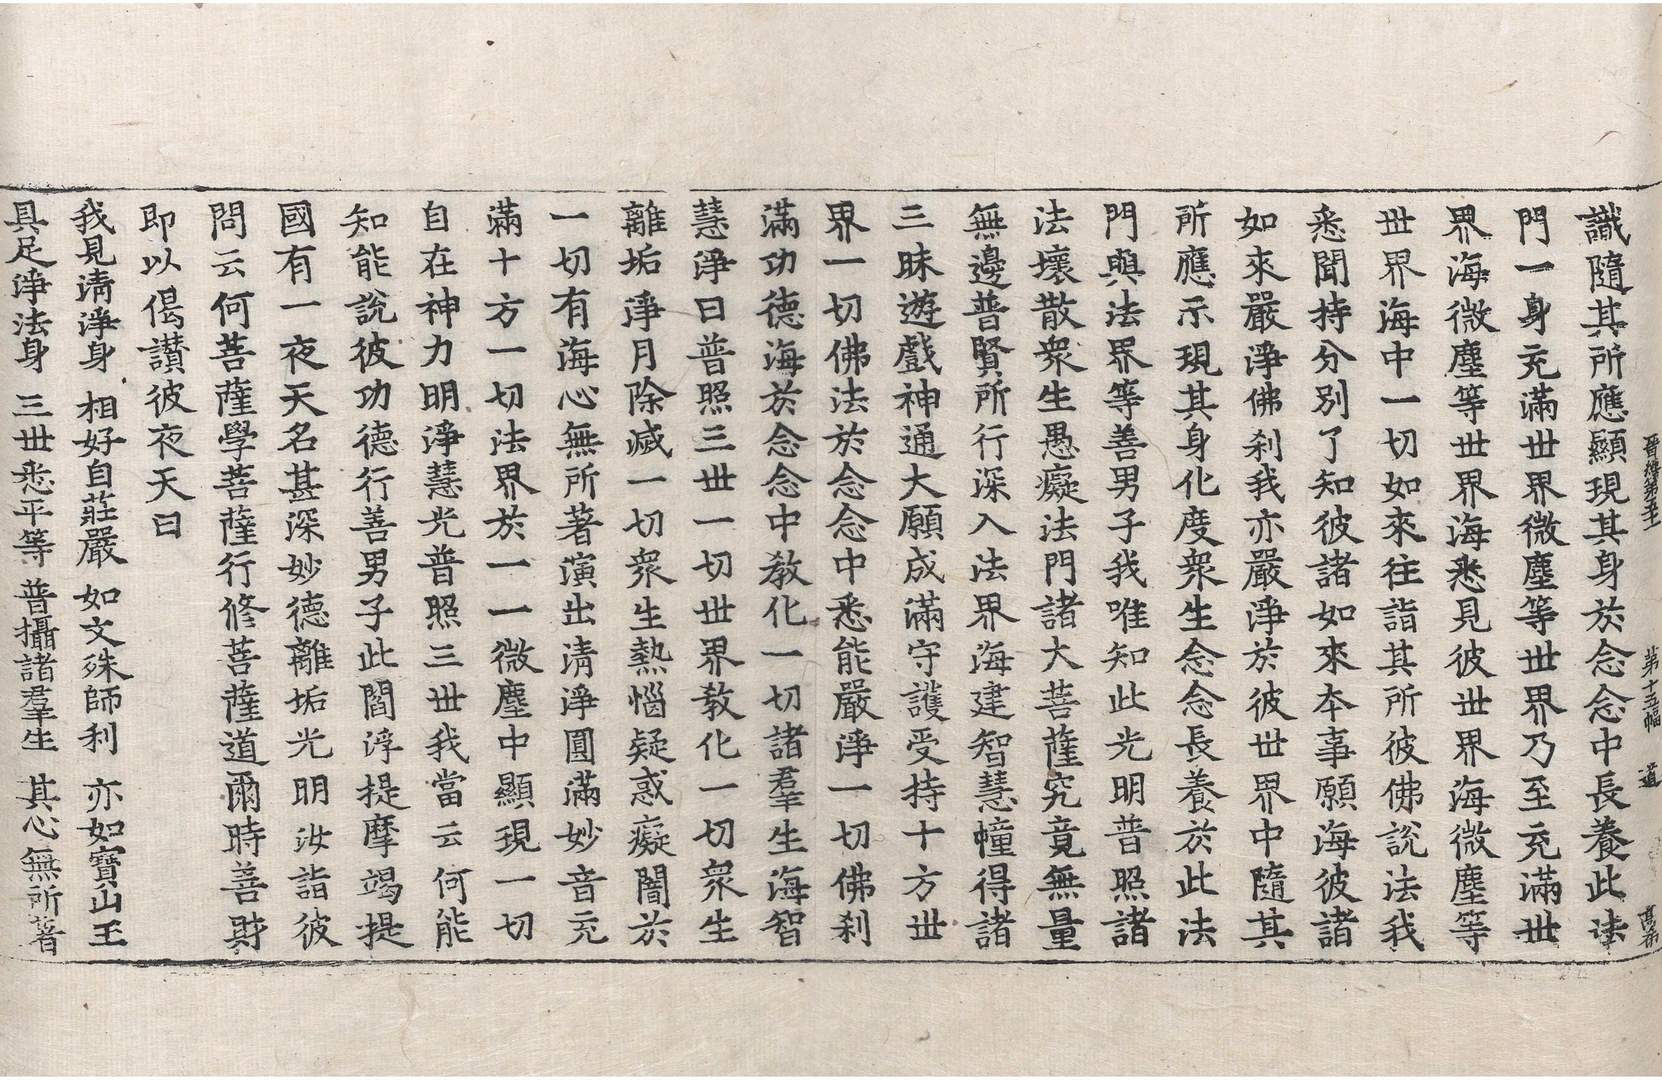 晉經第五十 第十五幅 道
識隨其所應顯現其身於念念中長養此法
門一身充滿世界微塵等世界乃至充滿世
界海微塵等世界海悉見彼世界海微塵等
世界海中一切如來往詣其所彼佛說法我
悉聞持分別了知彼諸如來本事願海彼諸
如來嚴淨佛剎我亦嚴淨於彼世界中隨其
所應示現其身化度眾生念念長養於此法
門與法界等善男子我唯知此光明普照諸
法壞散眾生愚癡法門諸大菩薩究竟無量
無邊普賢所行深入法界海建智慧幢得諸
三昧遊戲神通大願成滿守護受持十方世
界一切佛法於念念中悉能嚴淨一切佛剎
滿功德海於念念中教化一切諸羣生海智
慧淨日普照三世一切世界教化一切眾生
離垢淨月除滅一切眾生熱惱疑惑癡闇於
一切有海心無所著演出清淨圓滿妙音充
滿十方一切法界於一一微塵中顯現一切
自在神力明淨慧光普照三世我當云何能
知能說彼功德行善男子此閻浮提摩竭提
國有一夜天名甚深妙德離垢光明汝詣彼
問云何菩薩學菩薩行修菩薩道爾時善財
即以偈讃彼夜天曰
我見清淨身 相好自莊嚴 如文殊師利 亦如寶山王
具足淨法身 三世悉平等 普攝諸羣生 其心無所著